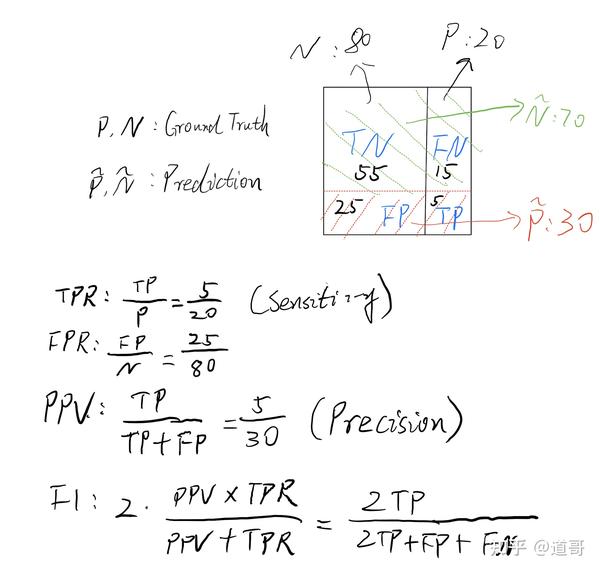 N : 80
P : 20
P, N : Ground Truth
P̂, N̂ : Prediction
TN
55
FN
15
Ñ : 70
25
FP
5
TP
P̂ : 30
TPR : TP/P = 5/20 (Sensitivity)
FPR : FP/N = 25/80
PPV : TP/(TP+FP) = 5/30 (Precision)
F1 : 2 · (PPV × TPR)/(PPV + TPR) = 2TP/(2TP+FP+FN)
知乎 @道哥